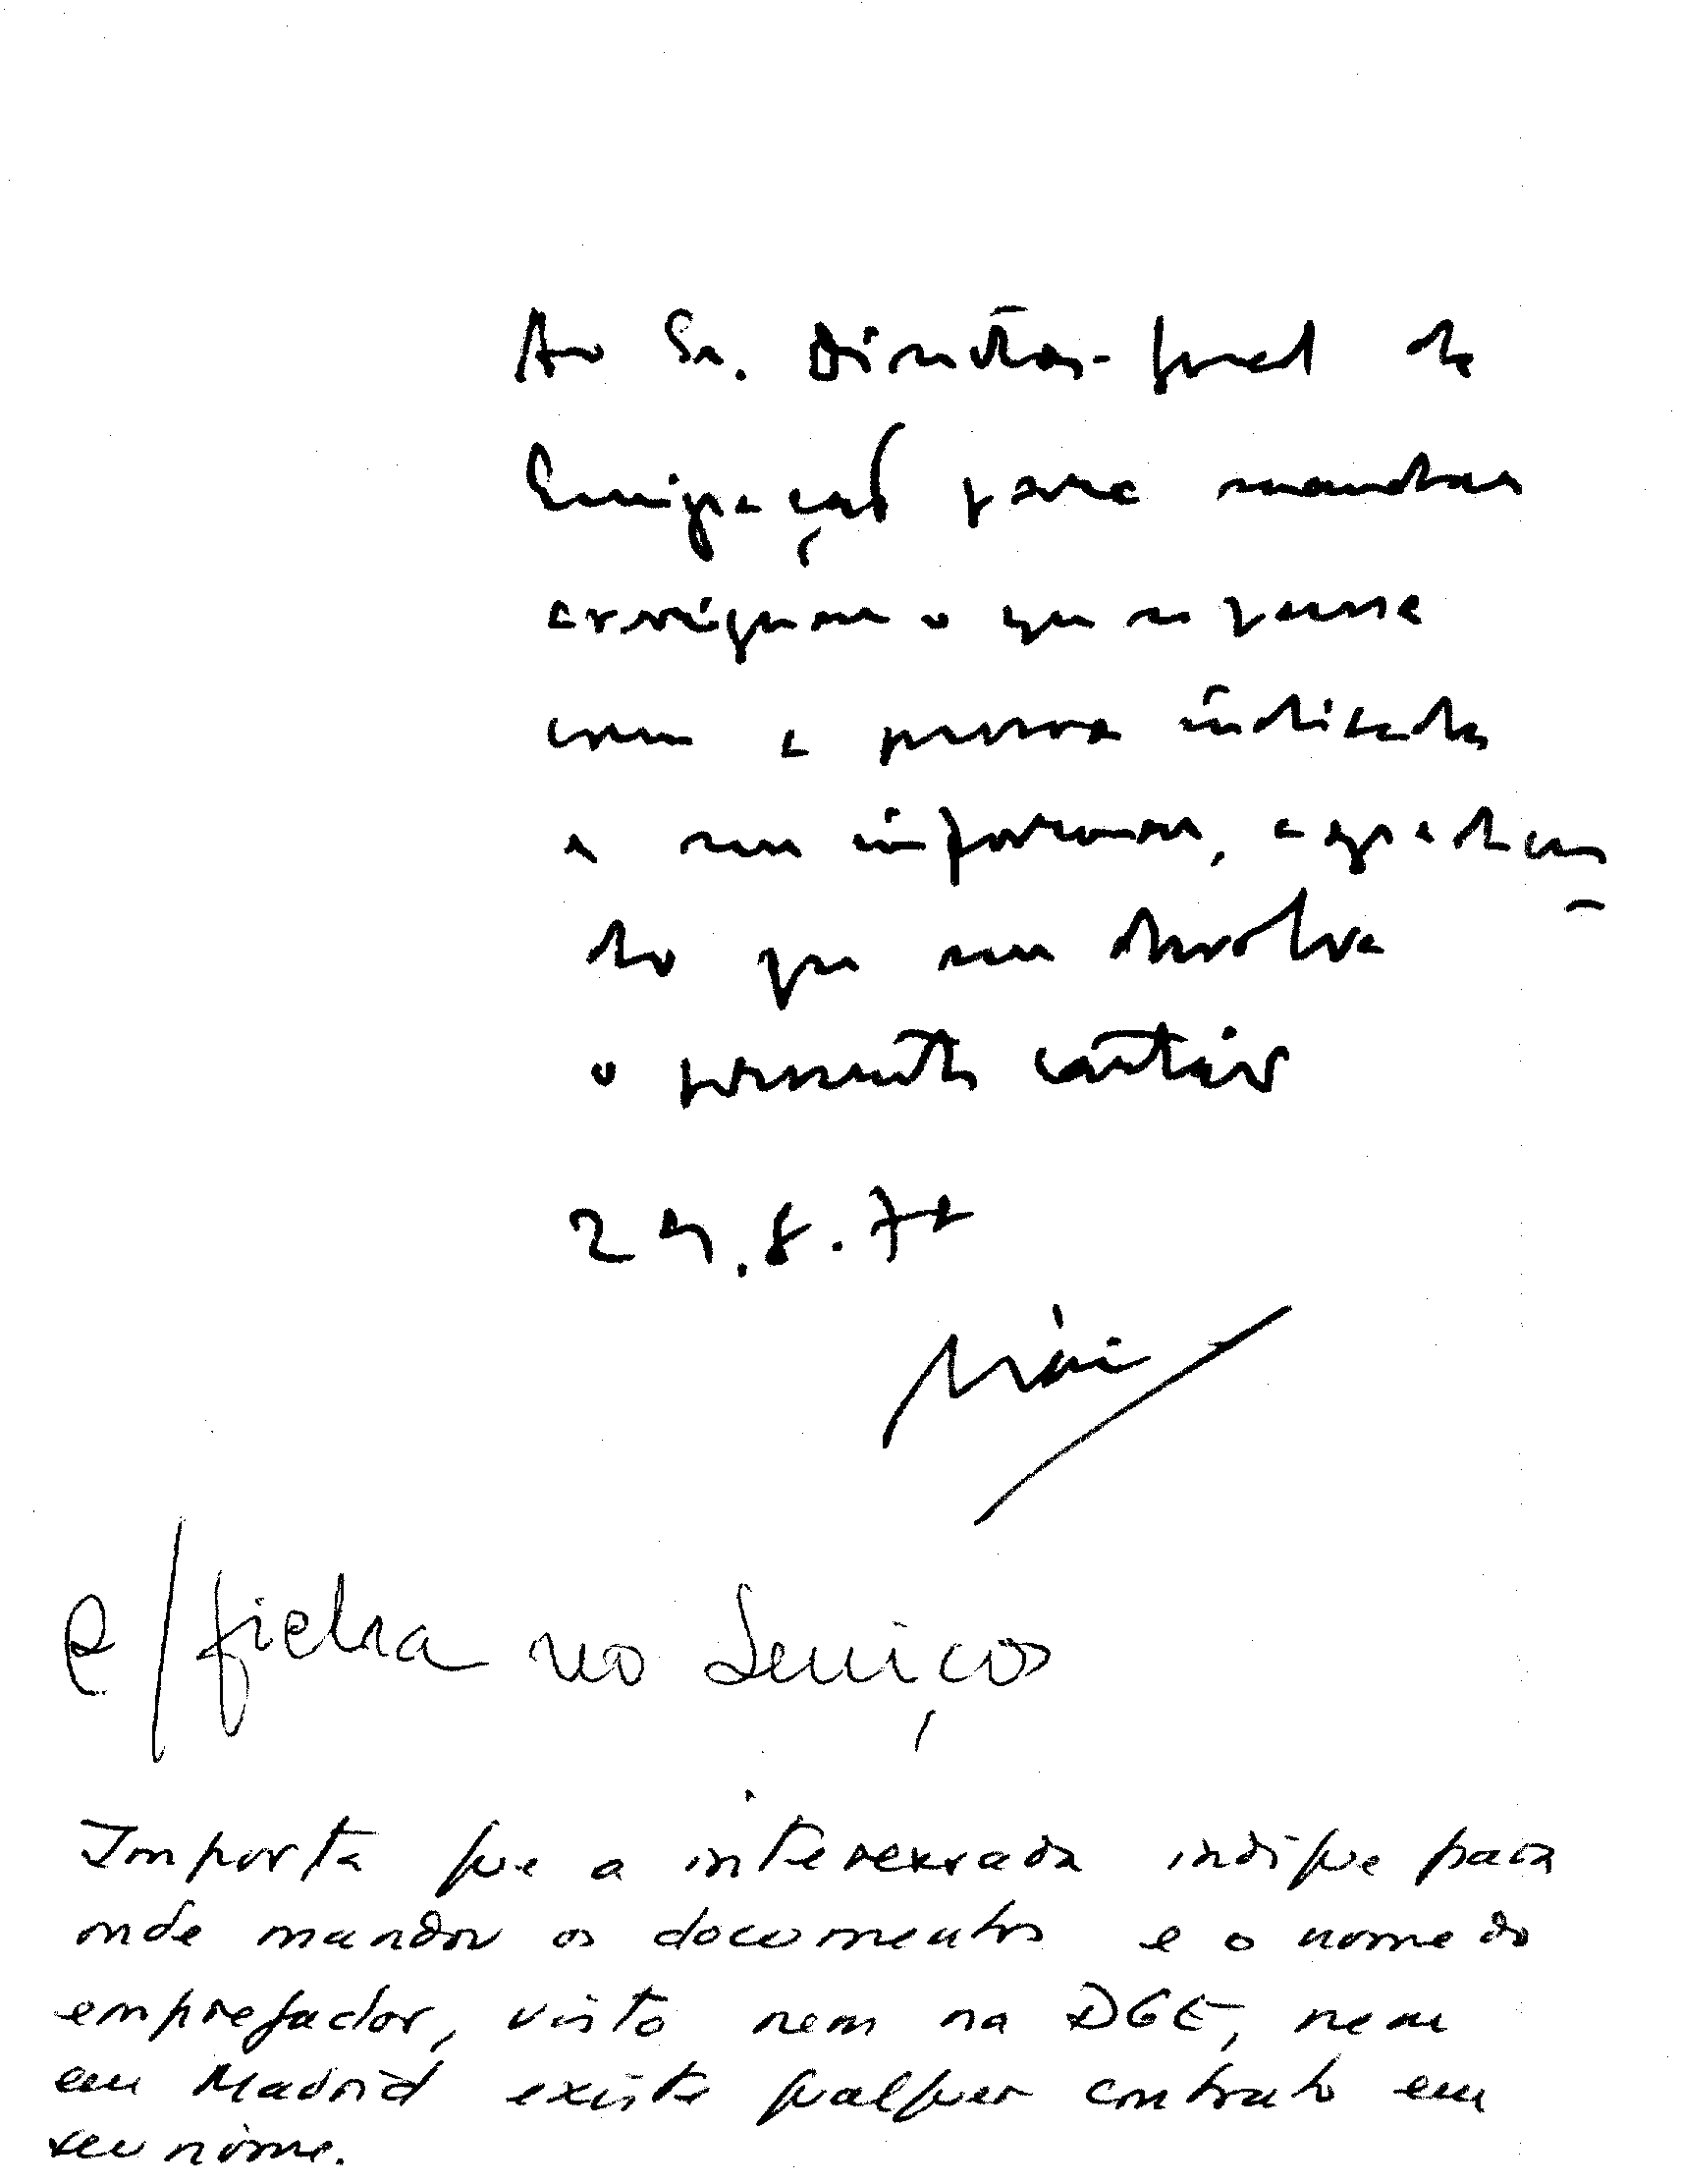 Ao Sr. Director-geral de
Emigração para mandar
averiguar o que se passa
com a pessoa indicada
e me informar, agradecen
do que me devolva
o presente cartão
24.8.72
c/ ficha no Serviços
Importa que a interessada indique para
onde mandou os documentos e o nome do
empregador, visto nem na DGE, nem
em Madrid existe qualquer contrato em
seu nome.